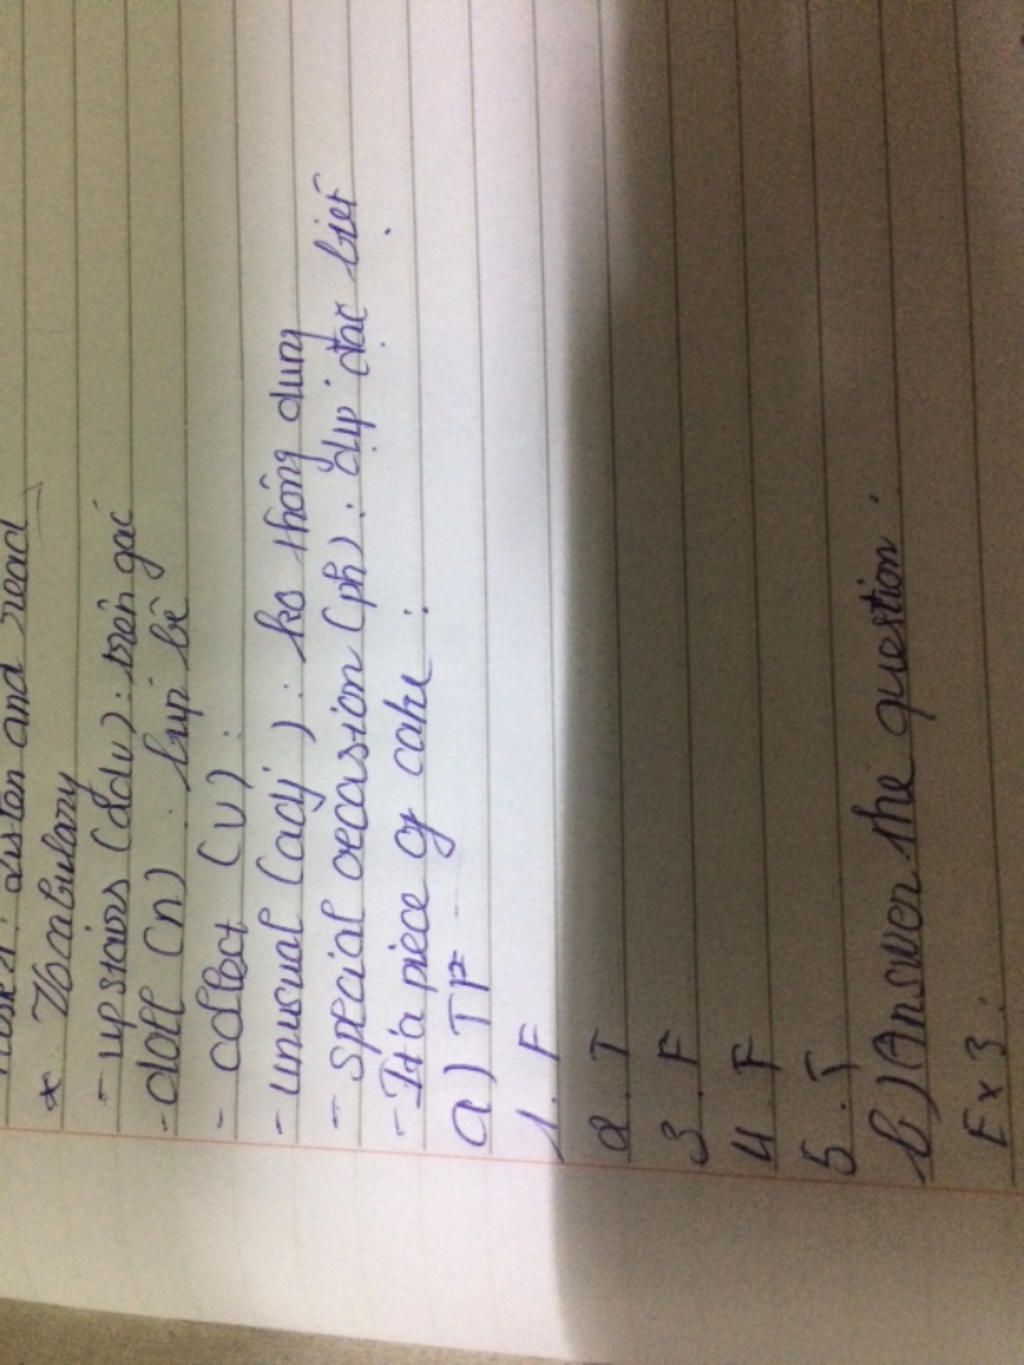 : Listen and read
* Vocabulary
- upstairs (adv) : trên gác
- doll (n) : búp bê
- collect (v) :
- unusual (adj) : ko thông dụng
- special occasion (ph) : dịp đặc biệt
- It's a piece of cake :
a) TF
1. F
2. T
3. F
4. F
5. T
b) Answer the question.
Ex 3 :